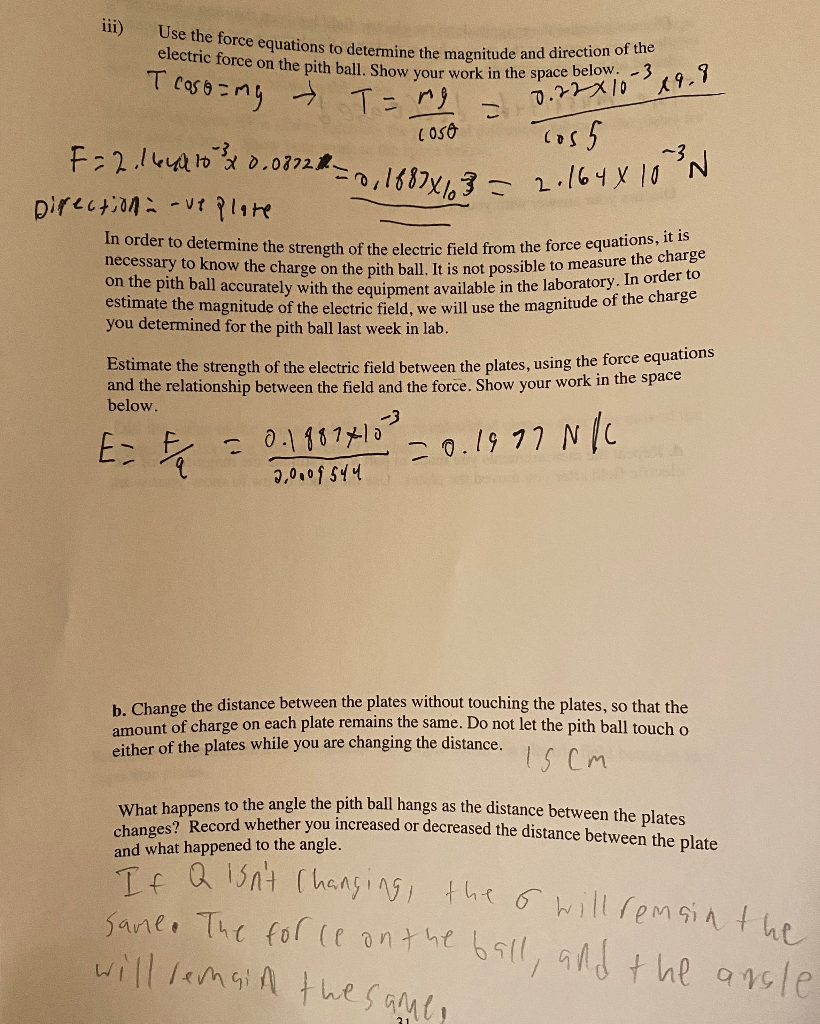 iii) Use the force equations to determine the magnitude and direction of the
electric force on the pith ball. Show your work in the space below.
T cosθ = mg → T = mg / cosθ = 0.22 × 10^-3 × 9.8 / cos 5
F = 2.164×10^-3 × 0.0872 = 0.1887×10^3 = 2.164 × 10^-3 N
Direction = -ve plate
In order to determine the strength of the electric field from the force equations, it is
necessary to know the charge on the pith ball. It is not possible to measure the charge
on the pith ball accurately with the equipment available in the laboratory. In order to
estimate the magnitude of the electric field, we will use the magnitude of the charge
you determined for the pith ball last week in lab.
Estimate the strength of the electric field between the plates, using the force equations
and the relationship between the field and the force. Show your work in the space
below.
E = F/q = 0.1887×10^-3 / 0.0009544 = 0.1977 N/C
b. Change the distance between the plates without touching the plates, so that the
amount of charge on each plate remains the same. Do not let the pith ball touch o
either of the plates while you are changing the distance.
15 cm
What happens to the angle the pith ball hangs as the distance between the plates
changes? Record whether you increased or decreased the distance between the plate
and what happened to the angle.
If Q isn't changing, the σ will remain the
same. The force on the ball, and the angle
will remain the same.
31